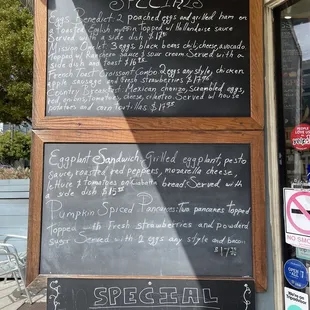 SPECIALS
Eggs Benedict 2 poached eggs and grilled ham on
a toasted English muffin Topped w/ Hollandaise sauce
Served with a side dish $17
Mission Omlet 3 eggs black beans chili, cheese, avocado
Topped w/ Ranchera sauce & sour cream Served with a
side dish and toast $16
French Toast Croissant Combo 2 eggs any style, chicken
apple sausage and fresh strawberries $17.95
Country Breakfast: Mexican chorizo, scrambled eggs,
red onions, Tomatoes, cheese, cilantro Served w/ house
potatoes and corn Tortillas $17.95
Eggplant Sandwich Grilled eggplant, pesto
sauce, roasted red peppers, mozzarella cheese,
lettuce & tomatoes on Ciabatta bread. Served with
side $15
Pumpkin Spiced Pancakes: Two pancakes Topped
Topped with Fresh strawberries and powdered
sugar Served with 2 eggs any style and bacon
$17
SPECIAL
NO SMO